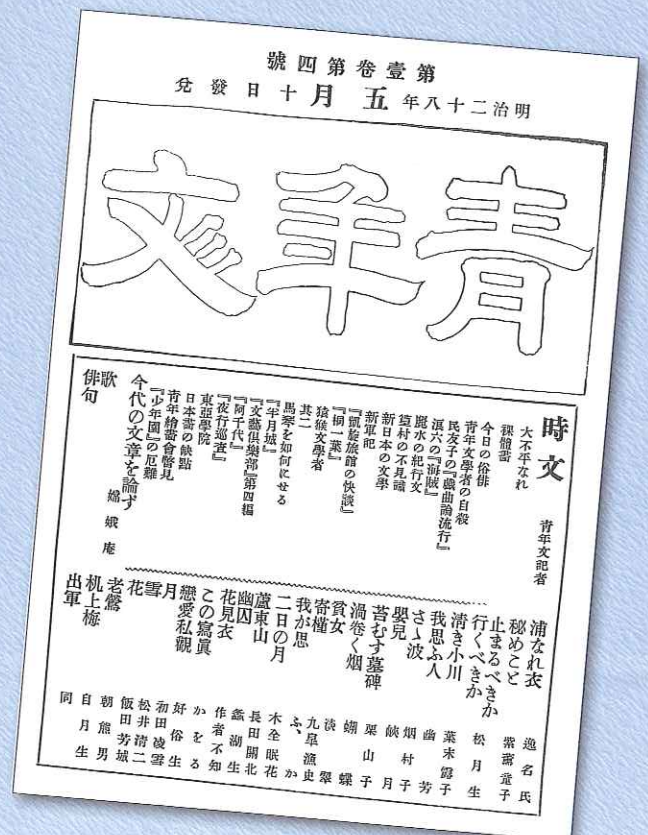 第壹卷第四號
明治二十八年五月十日發兌
青年文
時文 青年文記者
大不平なれ
裸體畵
今日の俗俳
青年文學者の自殺
民友子の『戯曲論流行』
滇六の『海賊』
麗水の紀行文
篁村の不見識
新日本の文學
新軍記
『凱旋旅館の快談』
『桐一葉』
猿猴文學者
其二
馬琴を如何にせる
『半月城』
『文藝倶樂部』第四編
『阿千代』
『夜行巡査』
東亞學院
日本畵の缺點
青年繪畵會瞥見
『少年園』の厄難
今代の文章を論ず 嫦娥庵
歌
俳句
浦なれ衣 逸名氏
秘めこと 紫齋童子
止まるべきか
行くべきか 松月生
清き小川 葉末露子
我思ふ人 幽芳
さゝ波 烟村子
嬰兒 月
苔むす墓碑 栗山子
渦卷く烟 蝴蝶
貧女 淡翠
寄槿 九皐漁史
我が思 ふ、か
二日の月 木全眠花
蘆東山 長田開北
幽囚 蠡湖生
花見衣 作者不知
この寫眞 かをる
戀愛私觀 好俗生
月 和田凌雲
雪 松井清二
花 飯田芳城
老鶯 朝熊男
机上梅 自月生
出軍 同